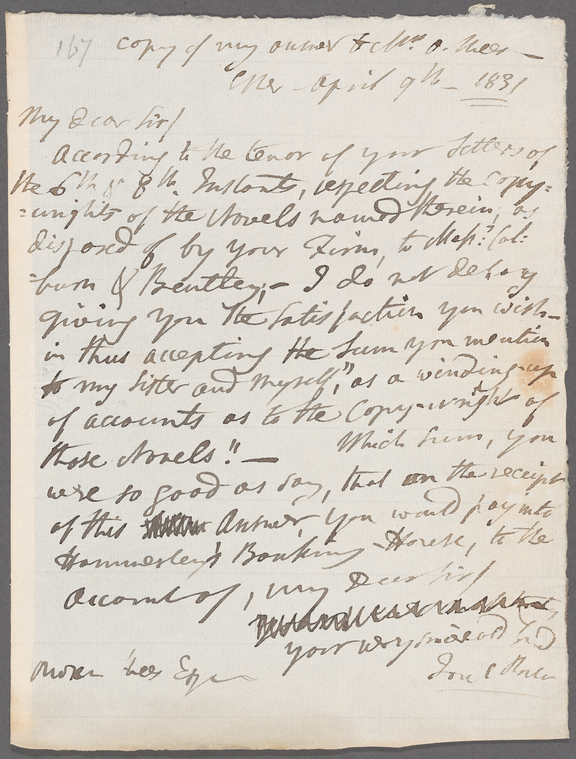 167 copy of my answer to Mr. O. Rees —
Esher – April 9th – 1831
My Dear Sir/
According to the tenor of your Letters of
the 6th & 8th Instants, respecting the Copy-
=wrights of the Novels named therein, as
disposed of by your Firm, to Messrs: Col:
burn & Bentley; – I do not delay
giving you the Satisfaction you wish –
in thus accepting the Sum you mention
to my Sister and Myself," as a winding-up
of accounts as to the Copy-wright of
those Novels"! – Which Sum, you
were so good as say, that on the receipt
of this Answer, you would pay into
Hammersley's Banking-House, to the
account of, my Dear Sir/
your very sincere old
Owen Rees Esqr Jane Porter